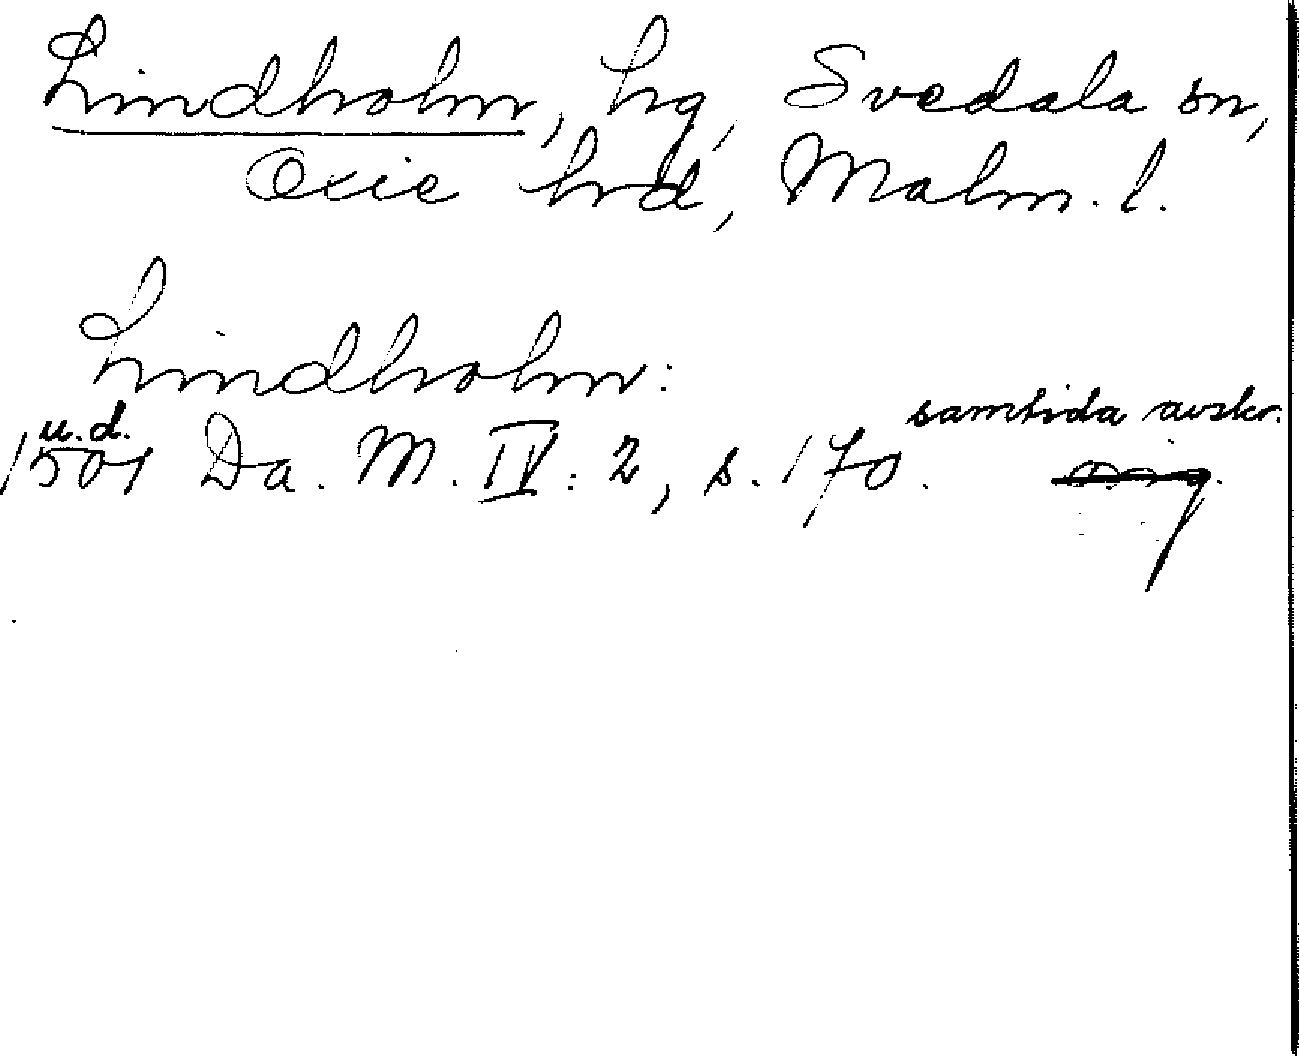 Lindholm, hg, Svedala sn,
Oxie hrd, Malm. l.
Lindholm:
u.d. samtida avskr.
1501 Da. M. IV: 2, s. 170.